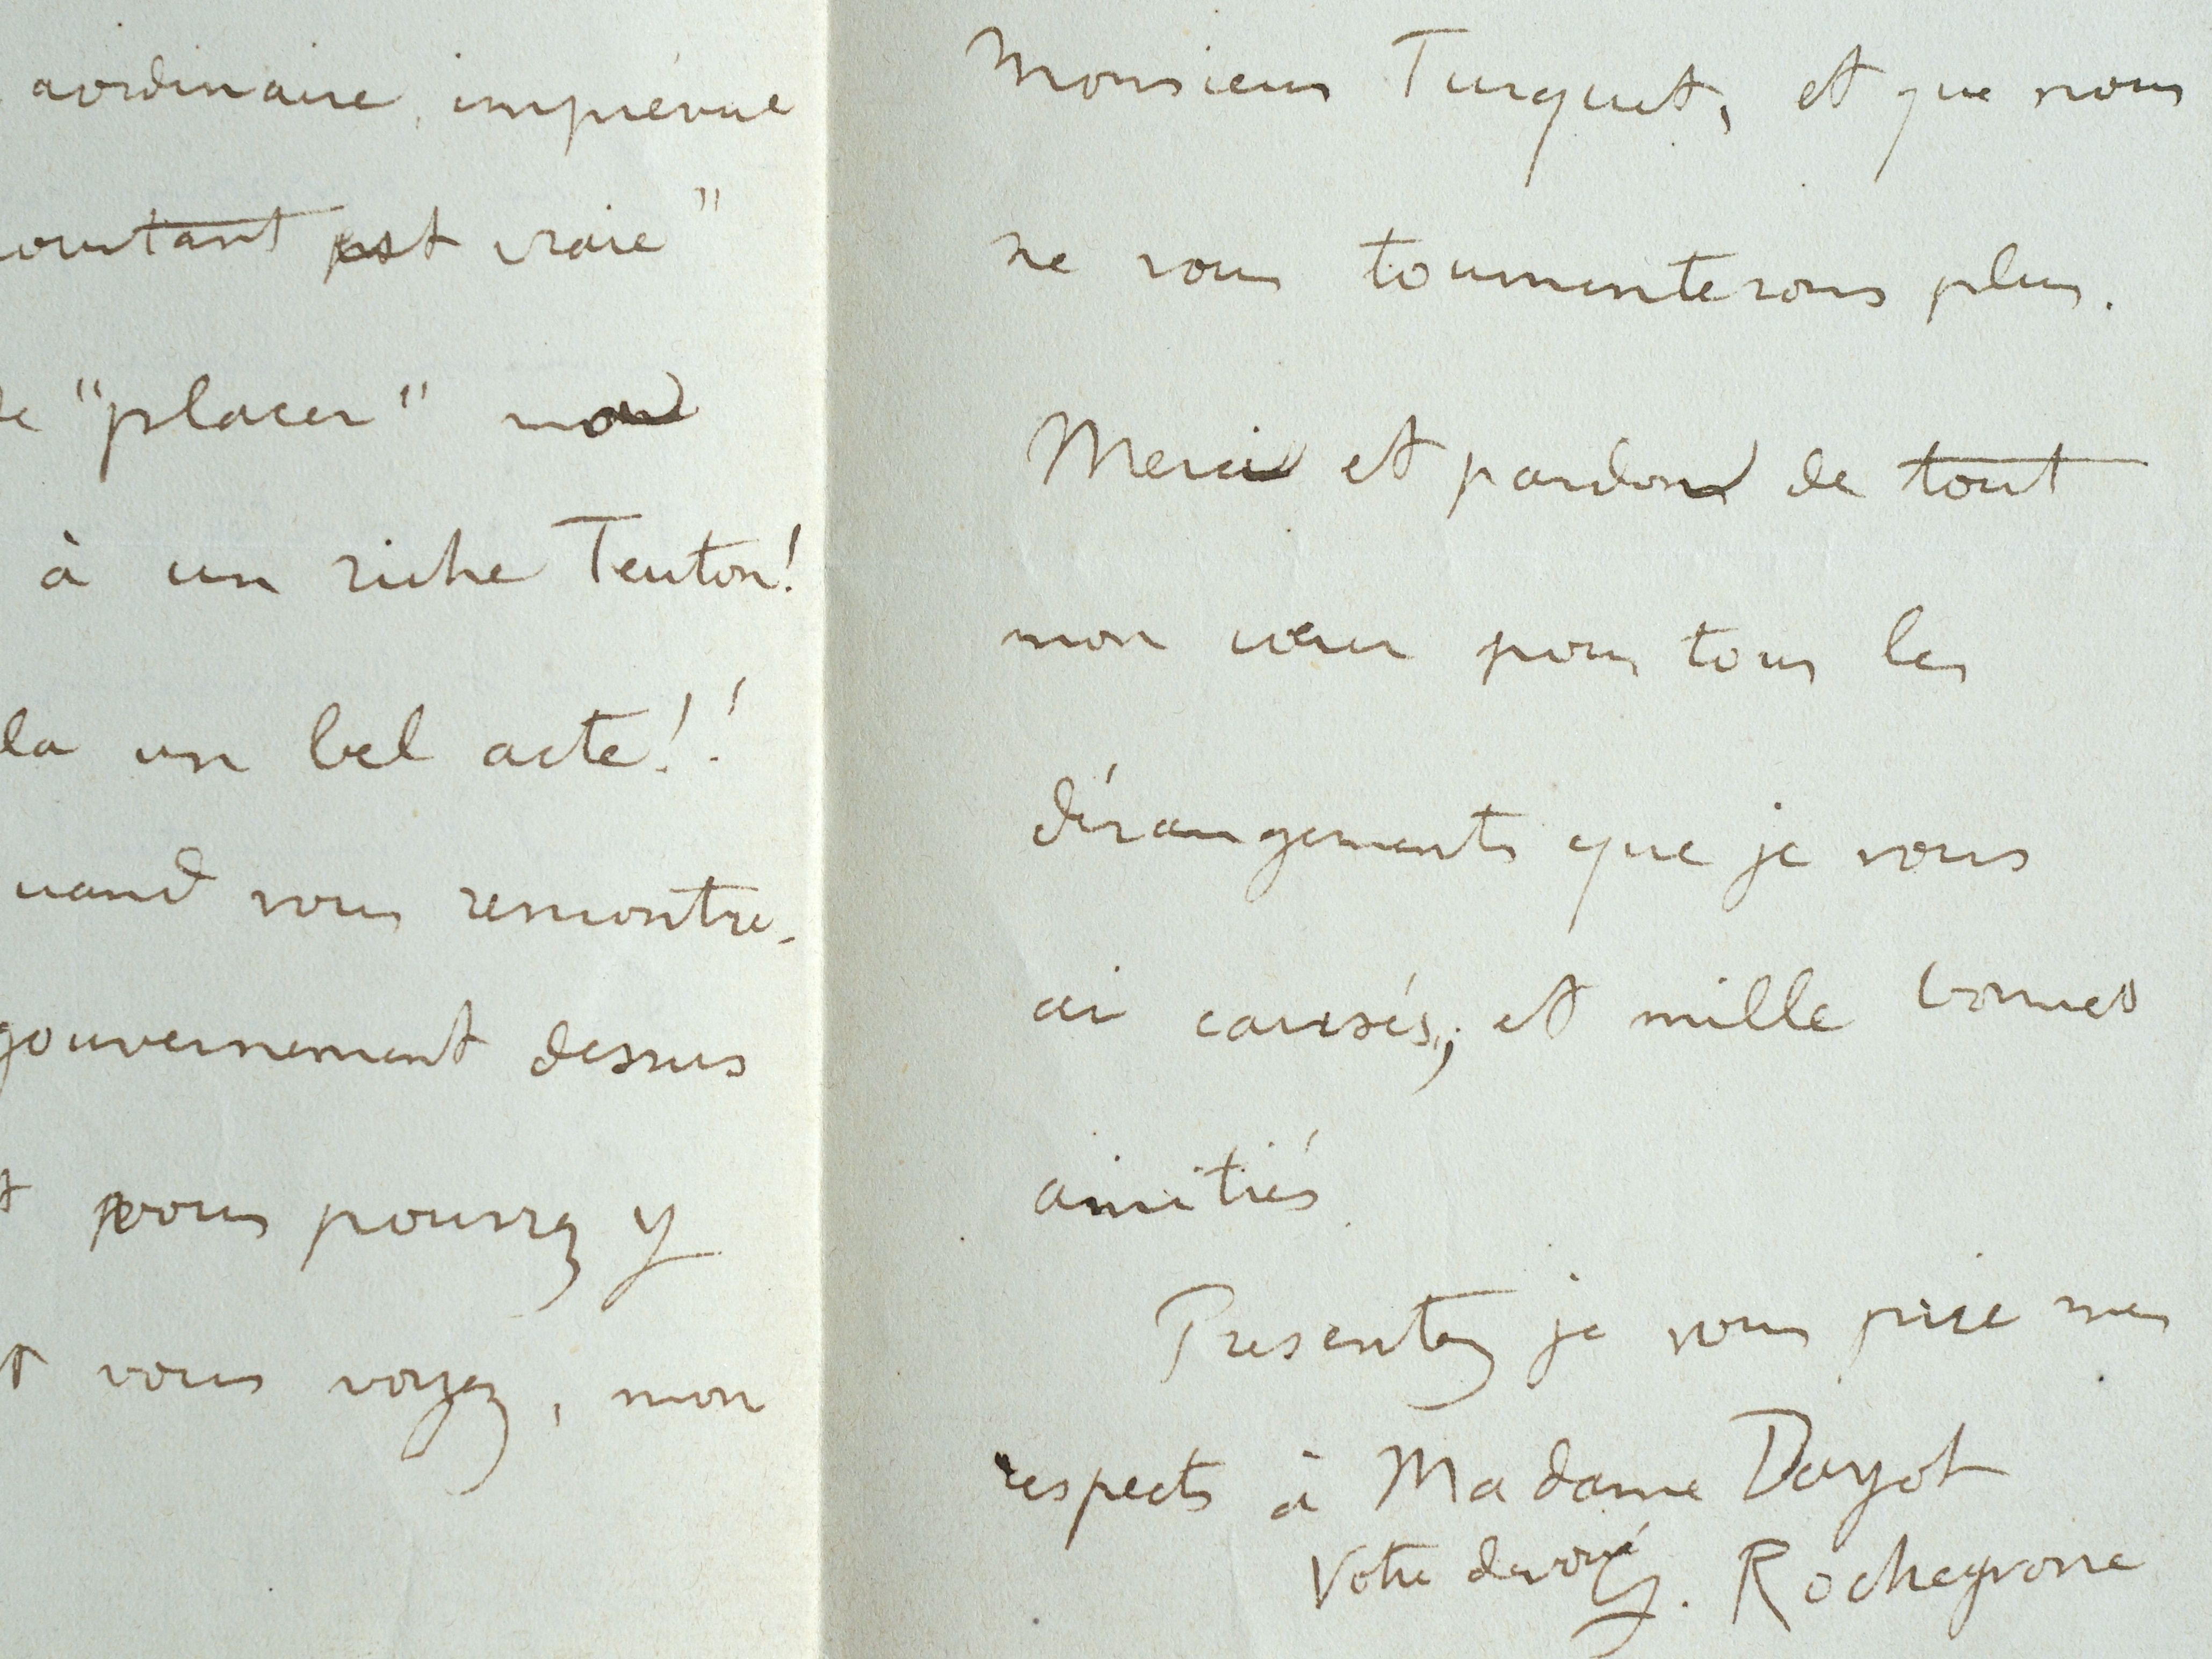 aordinaire, imprévue
ourtant est vraie"
e "placer" mon
à un riche Teuton!
la un bel acte!!
uand vous remontre-
gouvernement dessus
t vous pourrez y
t vous voyez, mon
Monsieur Turquet, et que nous
ne vous tourmenterons plus.
Merci et pardon de tout
mon cœur pour tous les
dérangements que je vous
ai causés; et mille bonnes
amitiés.
Presentez je vous prie mes
respects à Madame Dayot
Votre devoué G. Rochegrosse